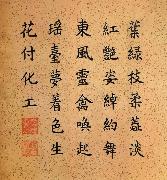 葉綠枝柔蕊淡
紅艷姿綽約舞
東風靈禽喚起
瑤臺夢着色生
花付化工